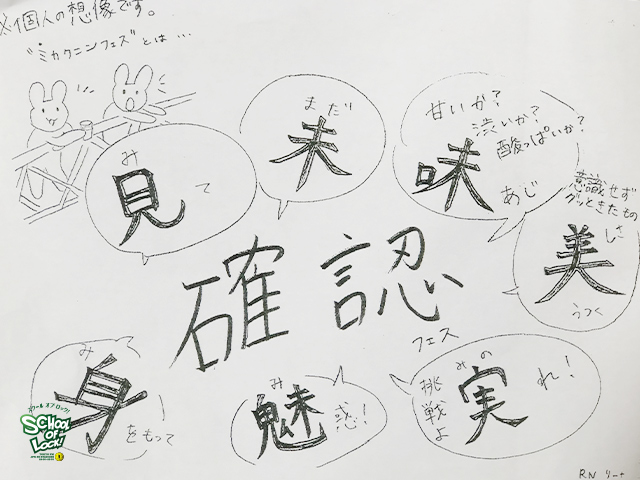 ※個人の想像です。
"ミカクニンフェス"とは…
見て
み
未
まだ
味
あじ
甘いか?
渋いか?
酸っぱいか?
意識せず
グッときたもの
美しさ
うつく
確認
フェス
身をもって
み
魅惑!
み
実れ!
みの
挑戦よ
スクール オブ ロック!
SCHOOL
OF
LOCK!
RN リーナ